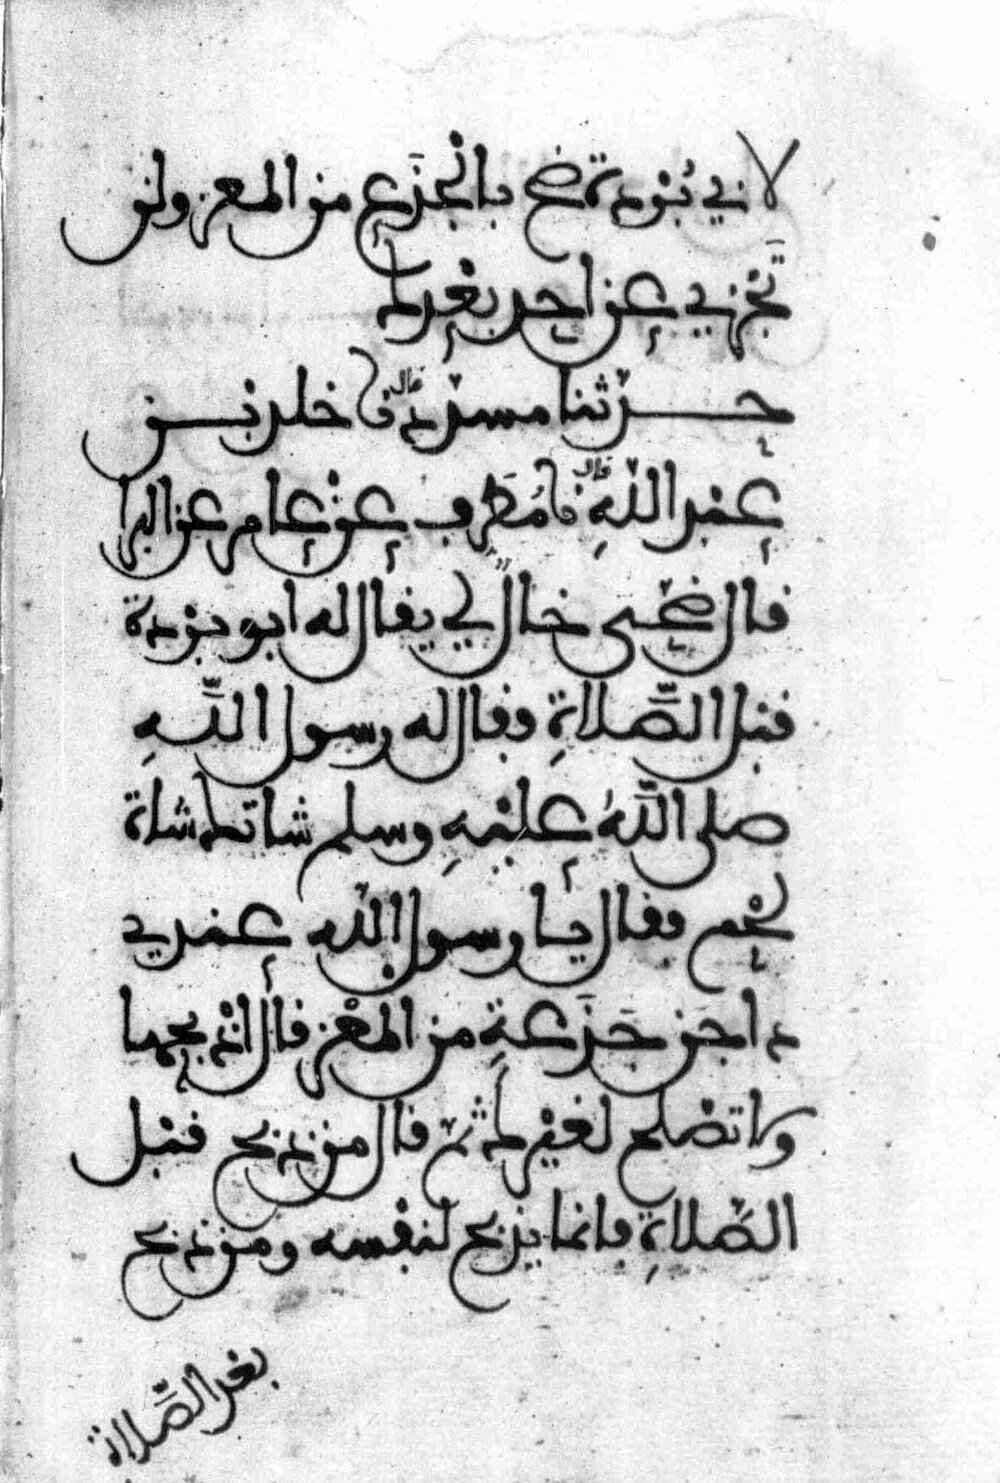 لابي بُرْدة ضح بالجَذَع من المعز ولن
تَّجزي عن احد بعْدك
حدثنا مسدد قال نا خلد بن
عبد الله قال نا مُطَرف عن عامر عن البرا
قال ضحى خال لي يقال له ابو بردة
قبل الصَّلاةِ فقال له رسول اللَّهِ
صلى اللَّهُ عليْهِ وسلم شاتك شاة
لحْم فقال يا رسول الله عندي
داجن جَذَعةٍ من المعْز قال اذبحها
ولا تصْلح لغيْرك ثم قال من ذبح قبل
الصَّلاةِ فانما يذبح لنفْسه ومن ذبح
بعد الصَّلاة